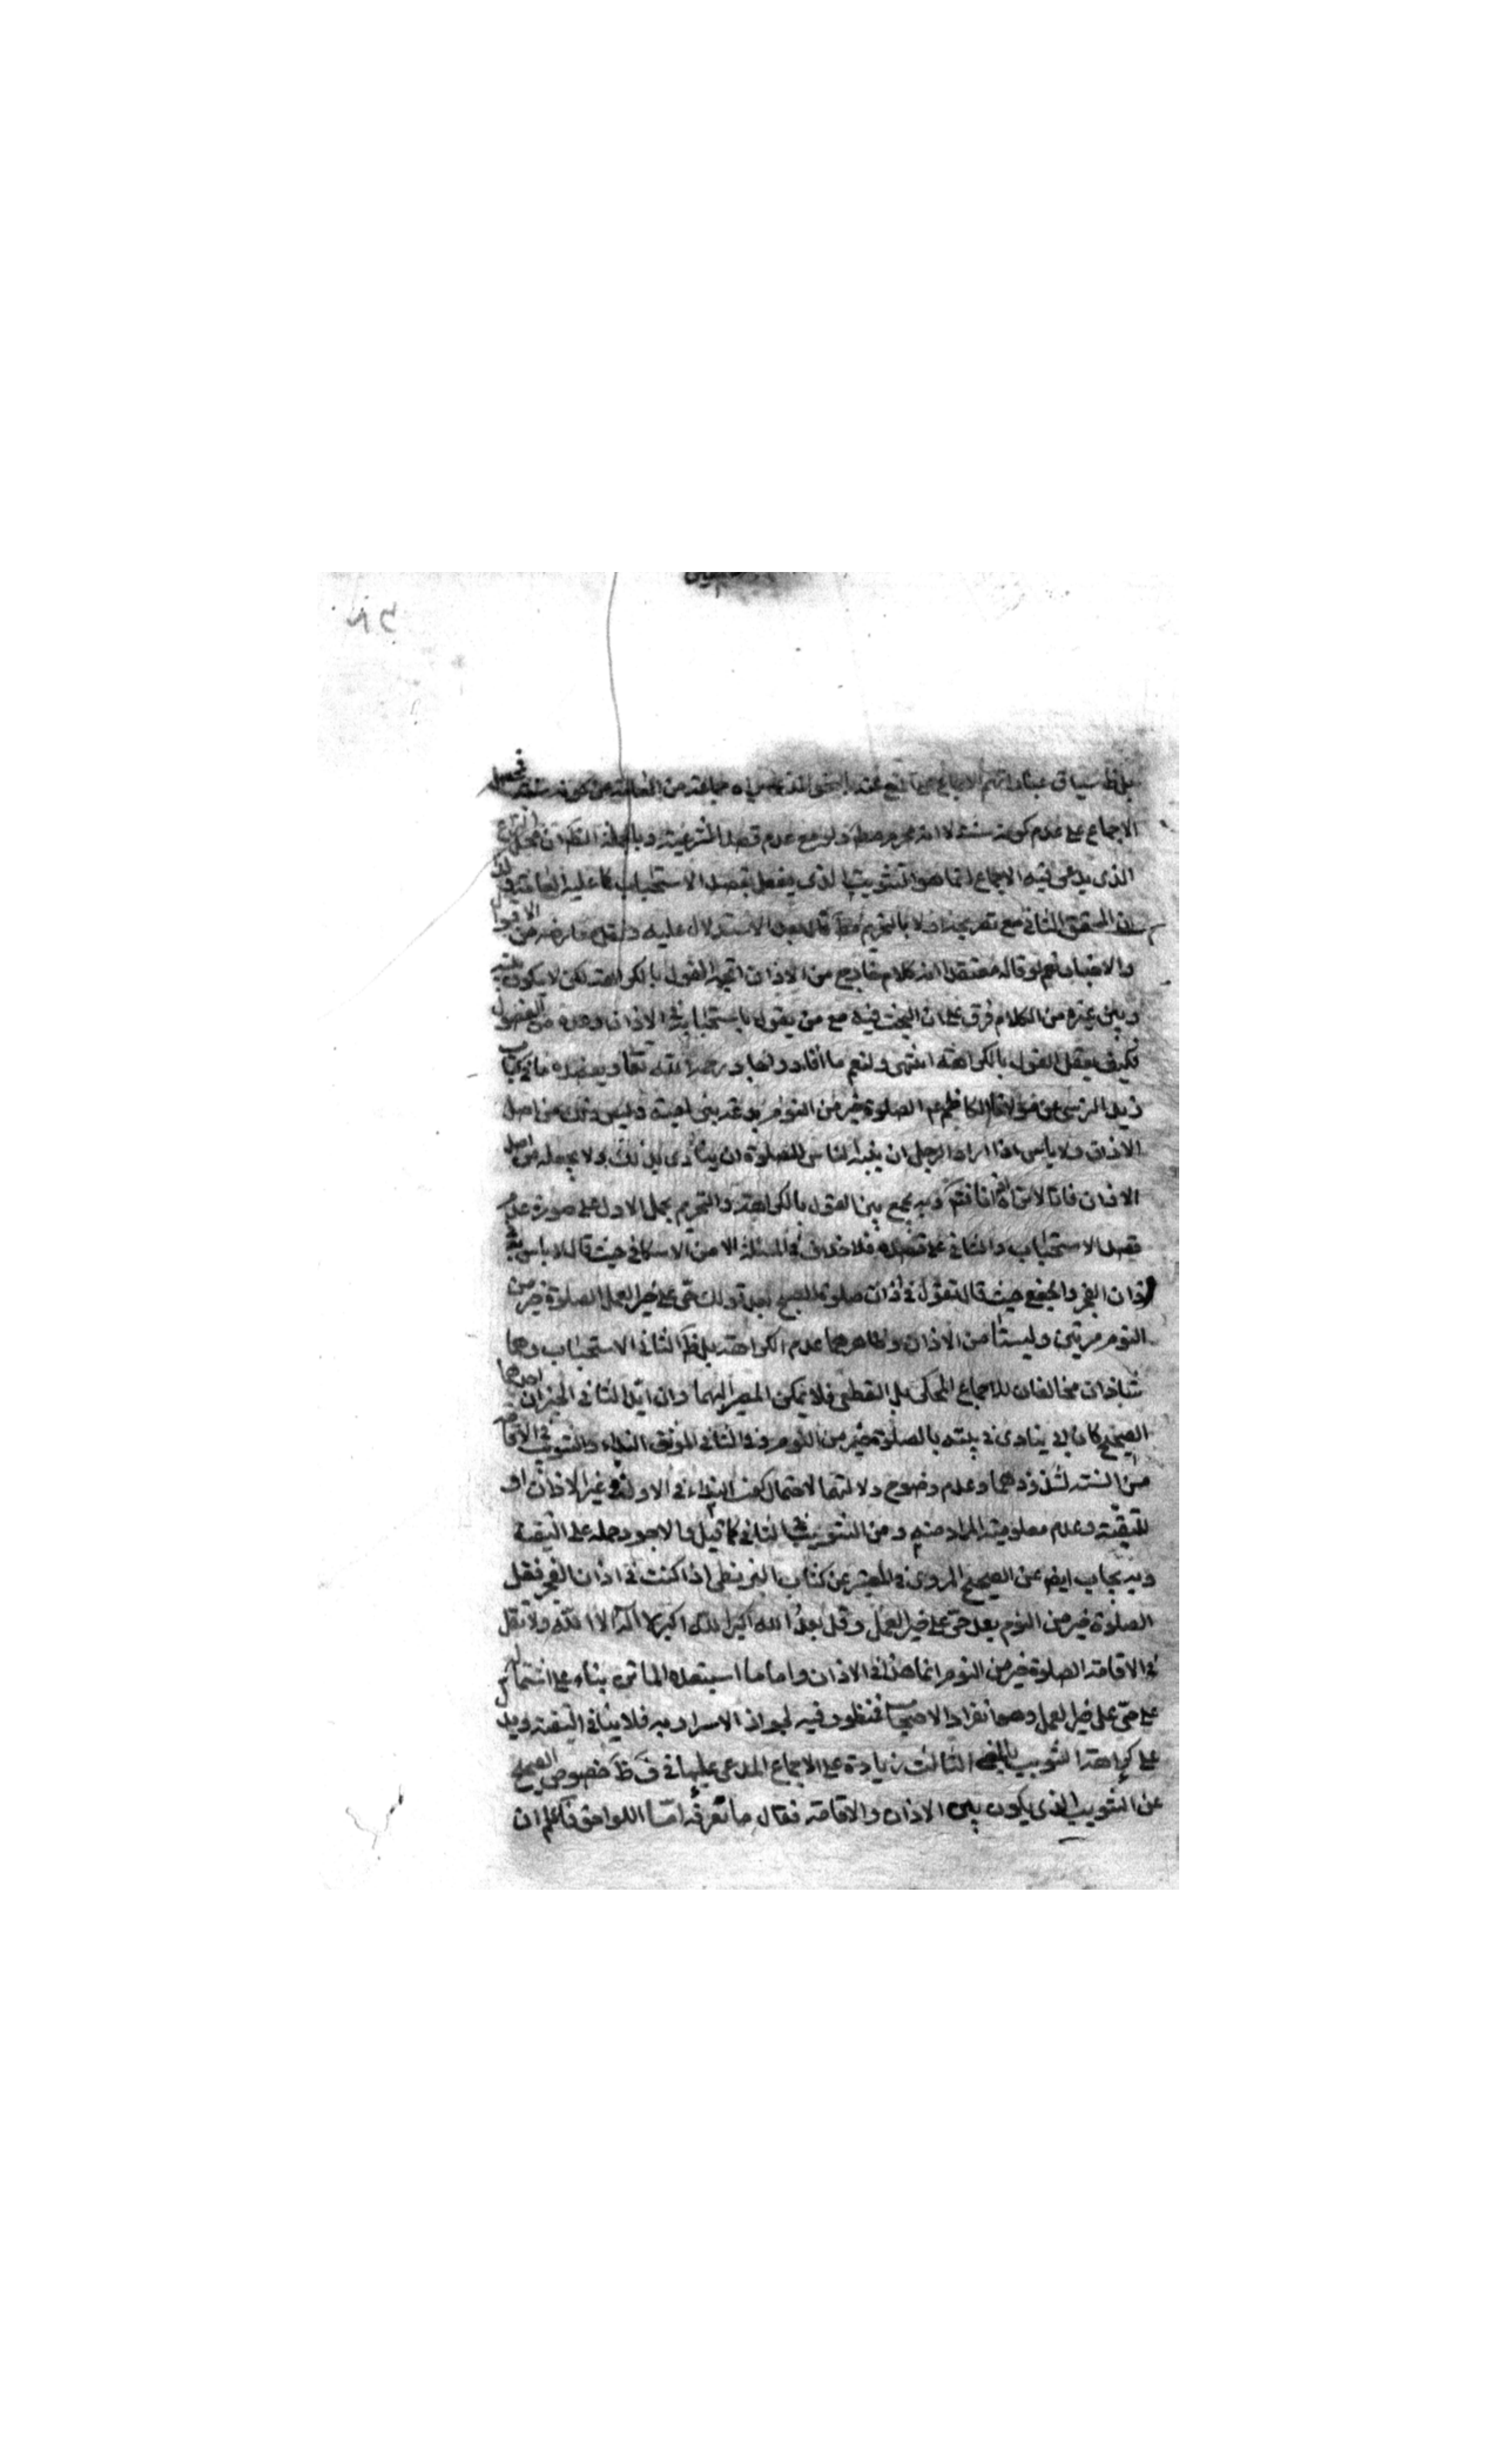 بل ظ سياق عباراتهم الاجماع على المنع عنه بالنحو الذي يراه جماعة من العامة من كونه سنة فيحصل
الاجماع على عدم كونه سنة لا انه محرم مط ولو مع عدم قصد الشرعية وبالجملة الظ ان محل النزاع
الذي يدعى فيه الاجماع انما هو التثويب الذي يفعل بقصد الاستحباب كما عليه العامة
المحقق الثاني مع تصريحه اولا بالتحريم مط قال بعد الاستدلال عليه ونقل ما رضه من الاقوال
والاخبار نعم لو قاله معتقدا انه كلام خارج من الاذان اتجه القول بالكراهة لكن لا يكون بينه
وبين غيره من الكلام فرق على ان البحث فيه مع من يقول باستحبابه في الاذان وعده من الفصول
فكيف يعقل القول بالكراهة انتهى ولنعم ما افاد واجاد رحمه الله تعا ويعضده ما في كتاب
زيد النرسي عن مولانا الكاظم ع الصلوة خير من النوم بدعة بني امية وليس ذلك من اصل
الاذان ولا باس اذا اراد الرجل ان ينبه الناس للصلوة ان ينادي بذلك ولا يجعله من اصل
الاذان فانا لا نراه اذانا وبه يجمع بين القول بالكراهة والتحريم بحمل الاول على صورة عدم
قصد الاستحباب والثاني على قصده فلا خلاف في المسئلة الا من الاسكافي حيث قال لا باس به في
اذان الفجر والجعفي حيث قال تقول في اذان صلوة الصبح بعد قولك حى على خير العمل الصلوة خير من
النوم مرتين وليستا من الاذان وظاهرهما عدم الكراهة بل ظ الثاني الاستحباب وهما
شاذان مخالفان للاجماع المحكى بل القطعي فلا يمكن المصير اليهما وان ايد الثاني الخبران احدهما
الصحيح كان ابي ينادي في بيته بالصلوة خير من النوم وفي الثاني الموثق النداء والتثويب في الاقامة
من السنة لشذوذهما وعدم وضوح دلالتهما لاحتمال كون النداء في الاول في غير الاذان او
للتقية وعدم معلومية المراد منه ومن التثويب في الثاني كما قيل والاجود حمله على التقية
وبه يجاب ايض عن الصحيح المروي في المعتبر عن كتاب البزنطي اذا كنت في اذان الفجر فقل
الصلوة خير من النوم بعد حى على خير العمل وقل بعد الله اكبر الله اكبر لا اله الا الله ولا تقل
في الاقامة الصلوة خير من النوم انما هذا في الاذان واما ما استبعده الماتن بناء على اشتماله
على حى على خير العمل وهو انفراد الاصحاب فمنظور فيه لجواز الاسرار به فلا ينافي التقية ويدل
على كراهة التثويب بالمعنى الثالث زيادة على الاجماع المدعى عليها في ف ظ خصوص الصحيح
عن التثويب الذي يكون بين الاذان والاقامة فقال ما نعرفه اما اللواحق فاعلم ان